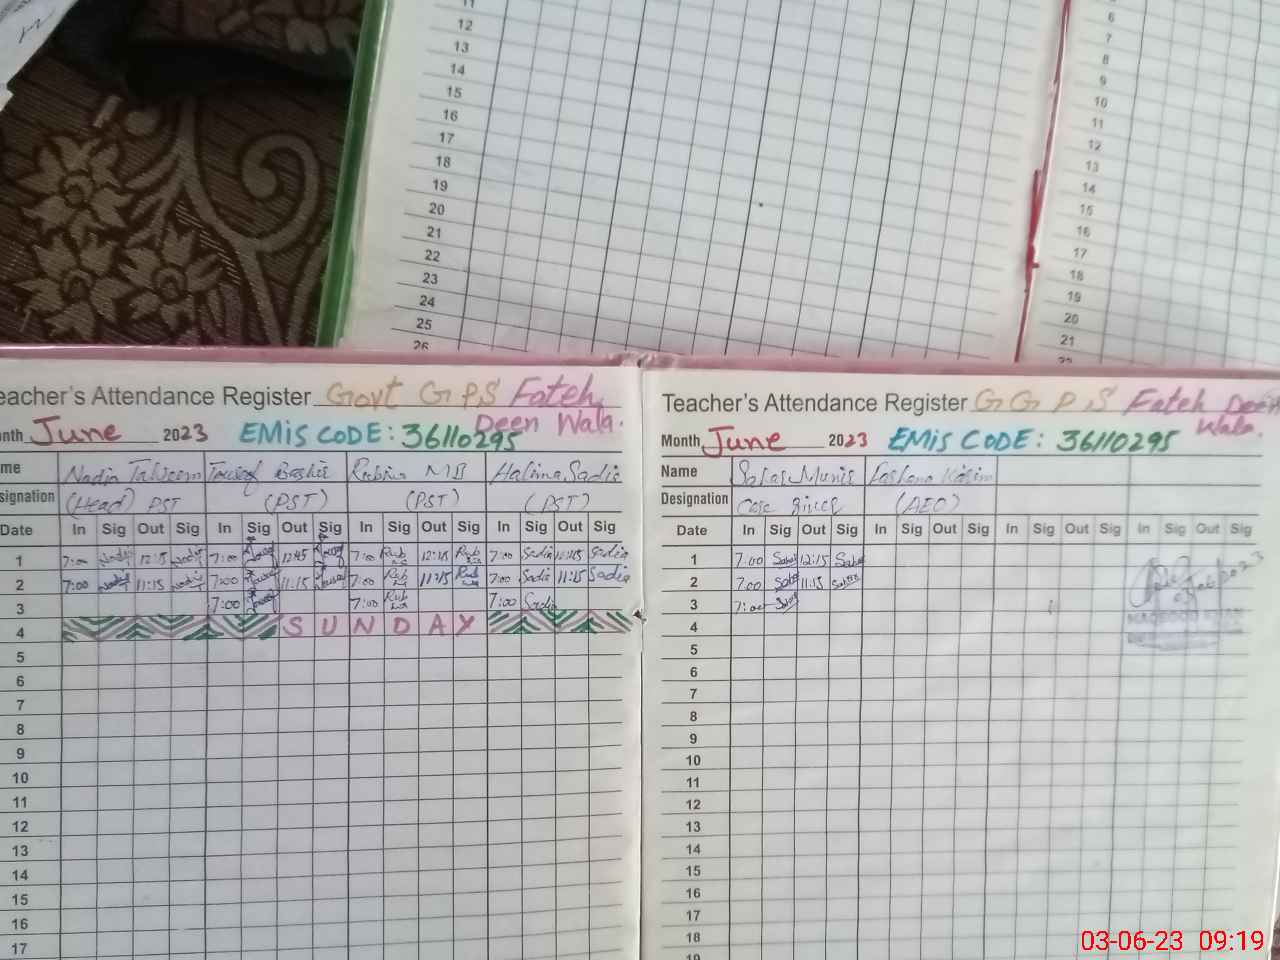 11
12
13
14
15
16
17
18
19
20
21
22
23
24
25
26
6
7
8
9
10
11
12
13
14
15
16
17
18
19
20
21
eacher's Attendance Register Govt G P S Fateh
Deen Wala.
onth June 2023 EMiS CODE: 36110295
me Nadia Rubina Halima Sadia
signation (Head) PST (PST) (PST) (PST)
Date In Sig Out Sig In Sig Out Sig In Sig Out Sig In Sig Out Sig
1 7:00 12:15 7:00 12:45 7:00 Rub 12:15 Rub 7:00 Sadia 12:15 Sadia
2 7:00 11:15 7:00 11:15 7:00 Rub 11:15 Rub 7:00 Sadia 11:15 Sadia
3 7:00 7:00 Rub 7:00 Sadia
4 SUNDAY
5
6
7
8
9
10
11
12
13
14
15
16
17
Teacher's Attendance Register G G P S Fateh Deen
Wala.
Month June 2023 EMiS CODE: 36110295
Name
Designation (AEO)
Date In Sig Out Sig In Sig Out Sig In Sig Out Sig In Sig Out Sig
1 7:00 12:15
2 7:00 11:15
3 7:00
4
5
6
7
8
9
10
11
12
13
14
15
16
17
18
19
03-06-23 09:19